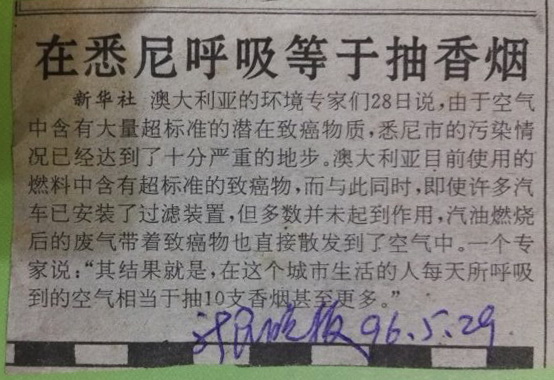 在悉尼呼吸等于抽香烟
新华社 澳大利亚的环境专家们28日说,由于空气
中含有大量超标准的潜在致癌物质,悉尼市的污染情
况已经达到了十分严重的地步。澳大利亚目前使用的
燃料中含有超标准的致癌物,而与此同时,即使许多汽
车已安装了过滤装置,但多数并未起到作用,汽油燃烧
后的废气带着致癌物也直接散发到了空气中。一个专
家说:“其结果就是,在这个城市生活的人每天所呼吸
到的空气相当于抽10支香烟甚至更多。”
新民晚报 96.5.29